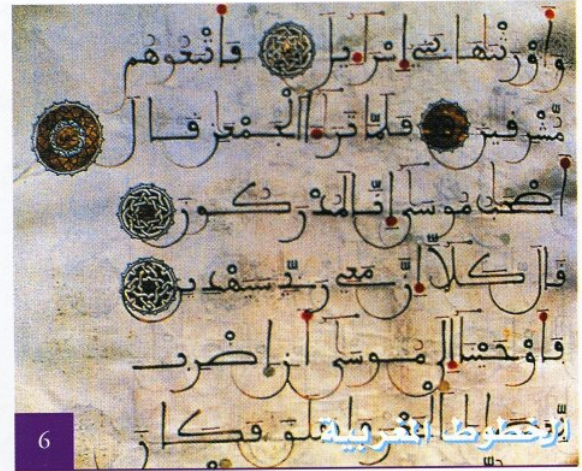 وَأَوْرَثْنَاهَا بَنِي إِسْرَائِيلَ فَأَتْبَعُوهُم
مُّشْرِقِينَ فَلَمَّا تَرَاءَا الْجَمْعَنِ قَالَ
أَصْحَبُ مُوسَى إِنَّا لَمُدْرَكُونَ
قَالَ كَلَّا إِنَّ مَعِي رَبِّي سَيَهْدِينِ
فَأَوْحَيْنَا إِلَى مُوسَى أَنِ اضْرِب
الْبَحْرَ فَانفَلَقَ فَكَانَ
الخطوط المغربية
6